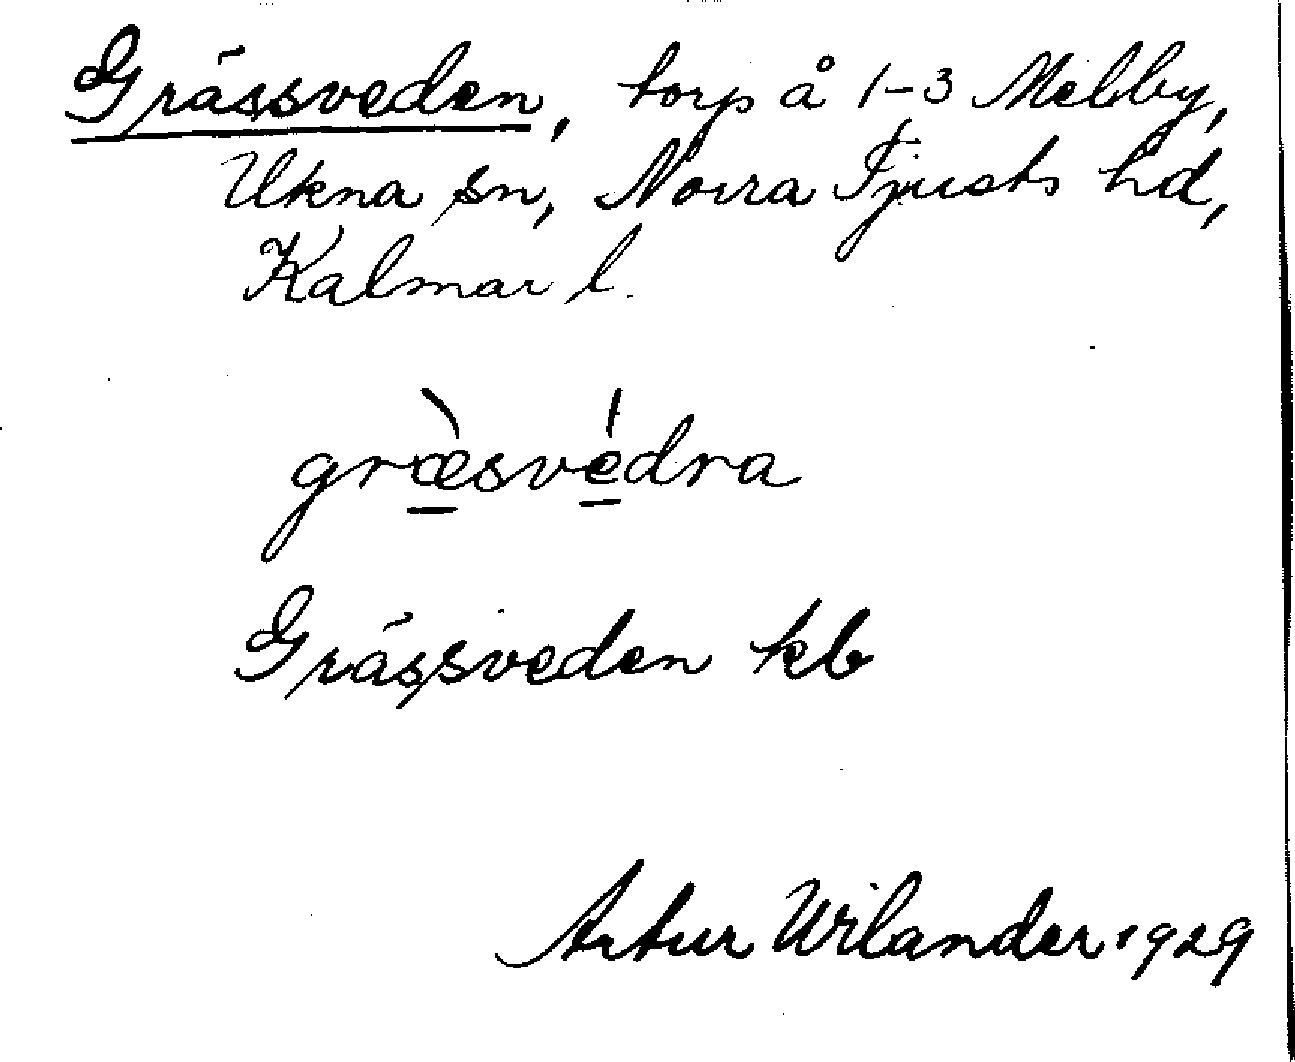 Grässveden, torp å 1-3 Mebby,
Ukna sn, Norra Tjusts hd,
Kalmar l.
græ̀svédra
Grässveden kb
Artur Wilander 1929